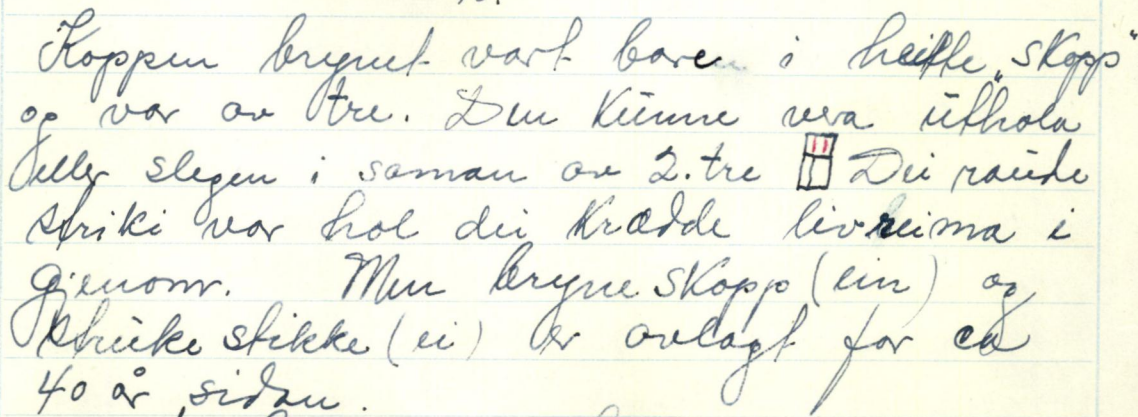 Koppen brynet vart bore i heitte "skopp"
og var av tre. Den kunne vera uthola
eller slegen i saman av 2. tre Dei raude
striki var hol dei krædde livreima i
gjenom. Men bryneskopp (ein) og
strukestikke (ei) er avlagt for ca
40 år sidan.